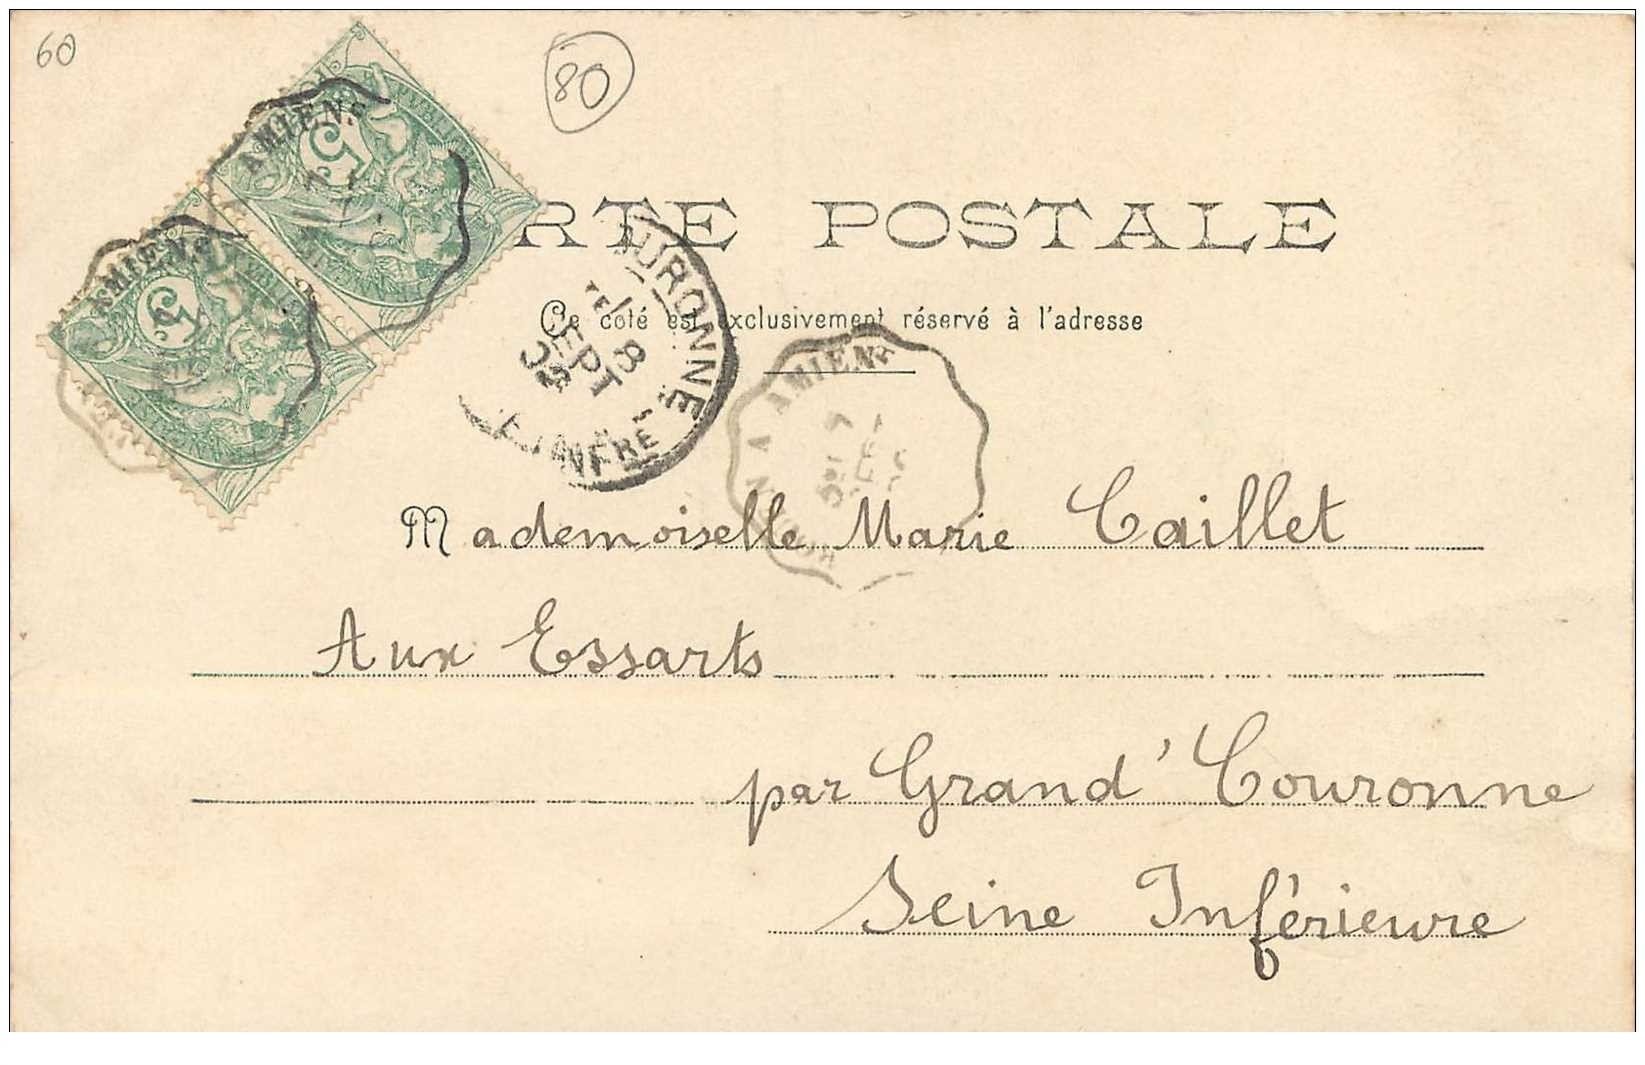 60
80
RTE POSTALE
Ce coté est exclusivement réservé à l'adresse
AMIENS
5
AMIENS
5
OURONNE
8
SEPT
INFRE
A AMIENS
Mademoiselle Marie Caillet
Aux Essarts
par Grand' Couronne
Seine Inférieure